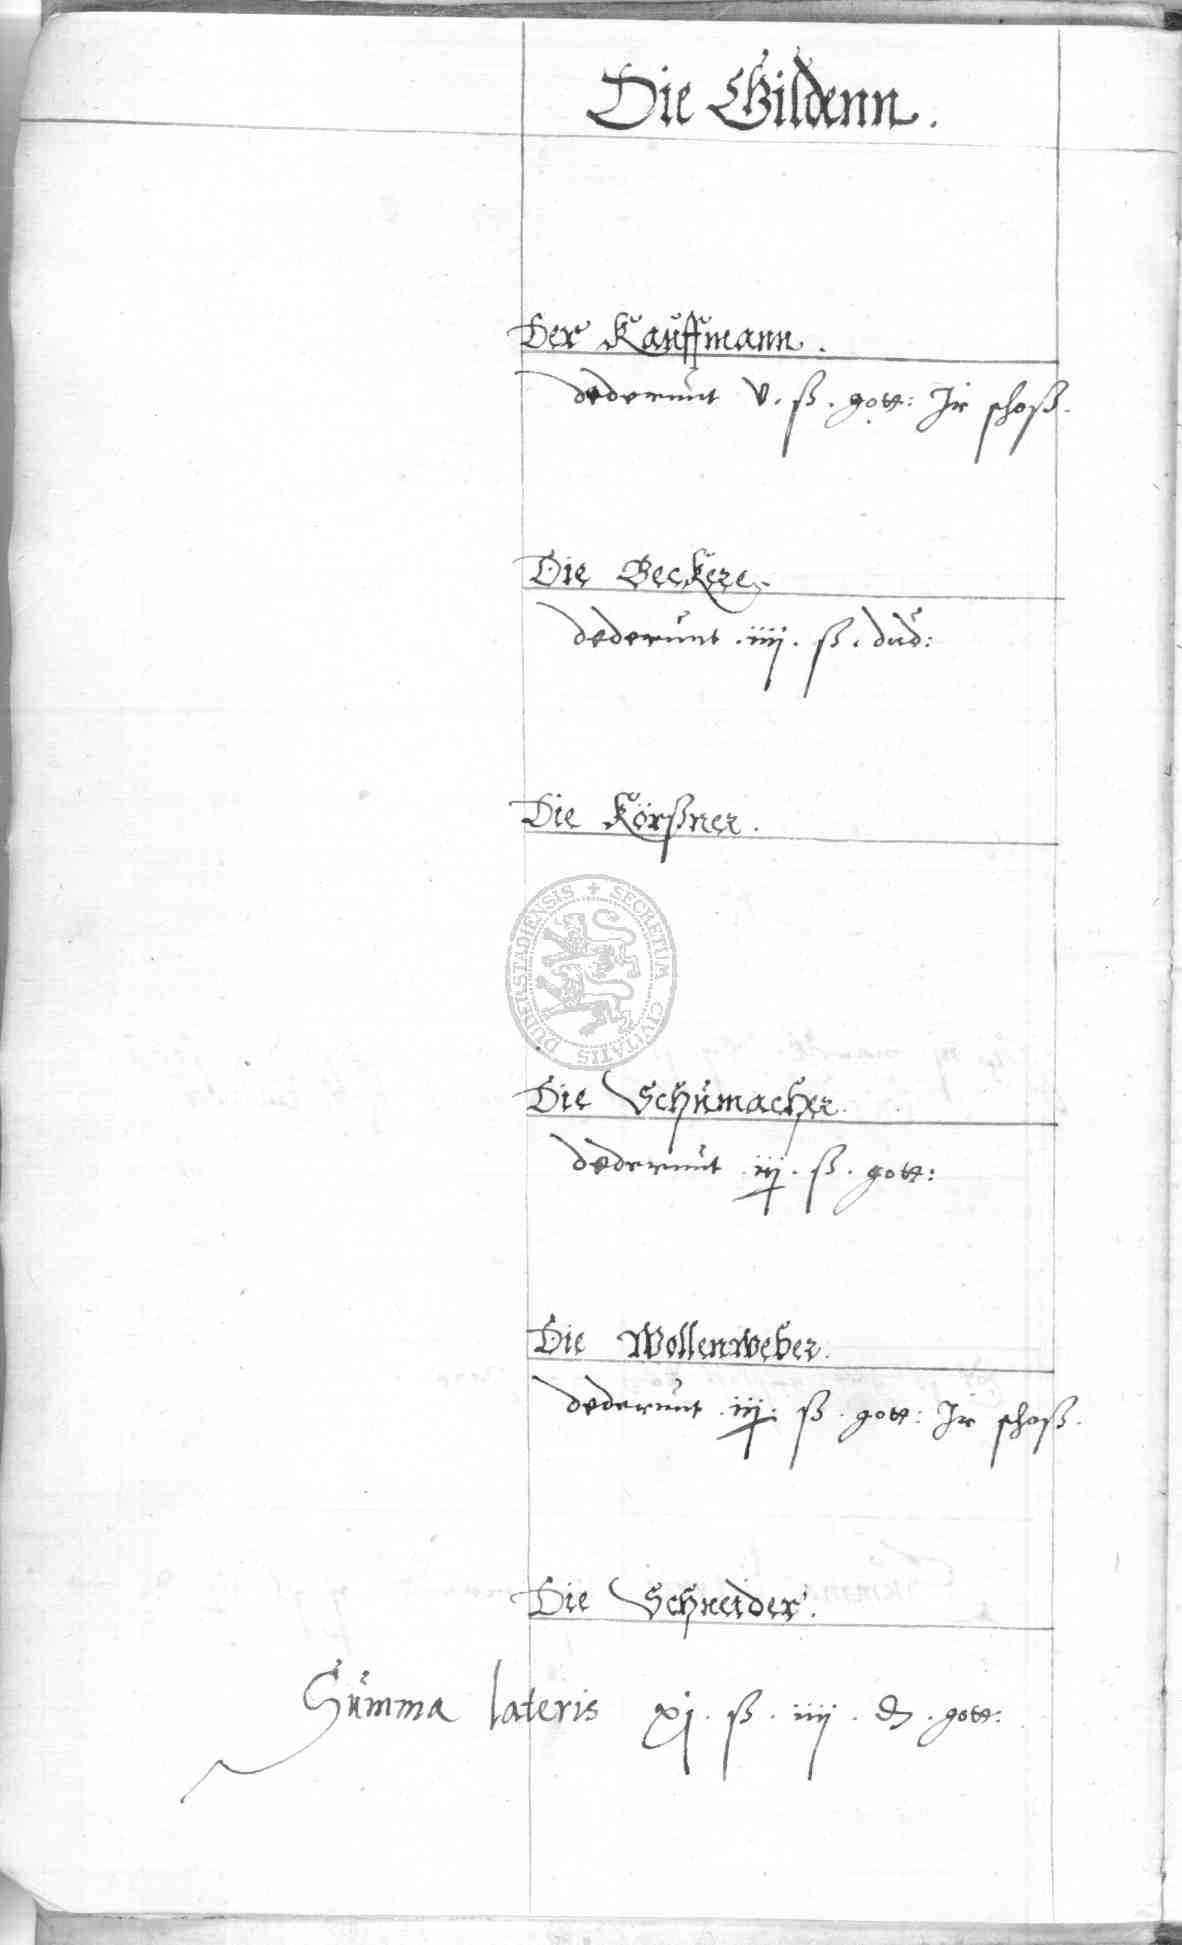 Die Gildenn.
Der Kauffmann.
dederunt v. ß. gott: Ir schoß.
Die Beckere
dederunt .iiij. ß. dud:
Die Körßner.
DUDERSTADIENSIS + SECRETUM CIVITATIS
Die Schumacher.
dederunt .iij. ß. gott:
Die Wollenweber.
dederunt .iij. ß. gott: Ir schoß.
Die Schneider.
Summa lateris xj. ß. iiij. gott: